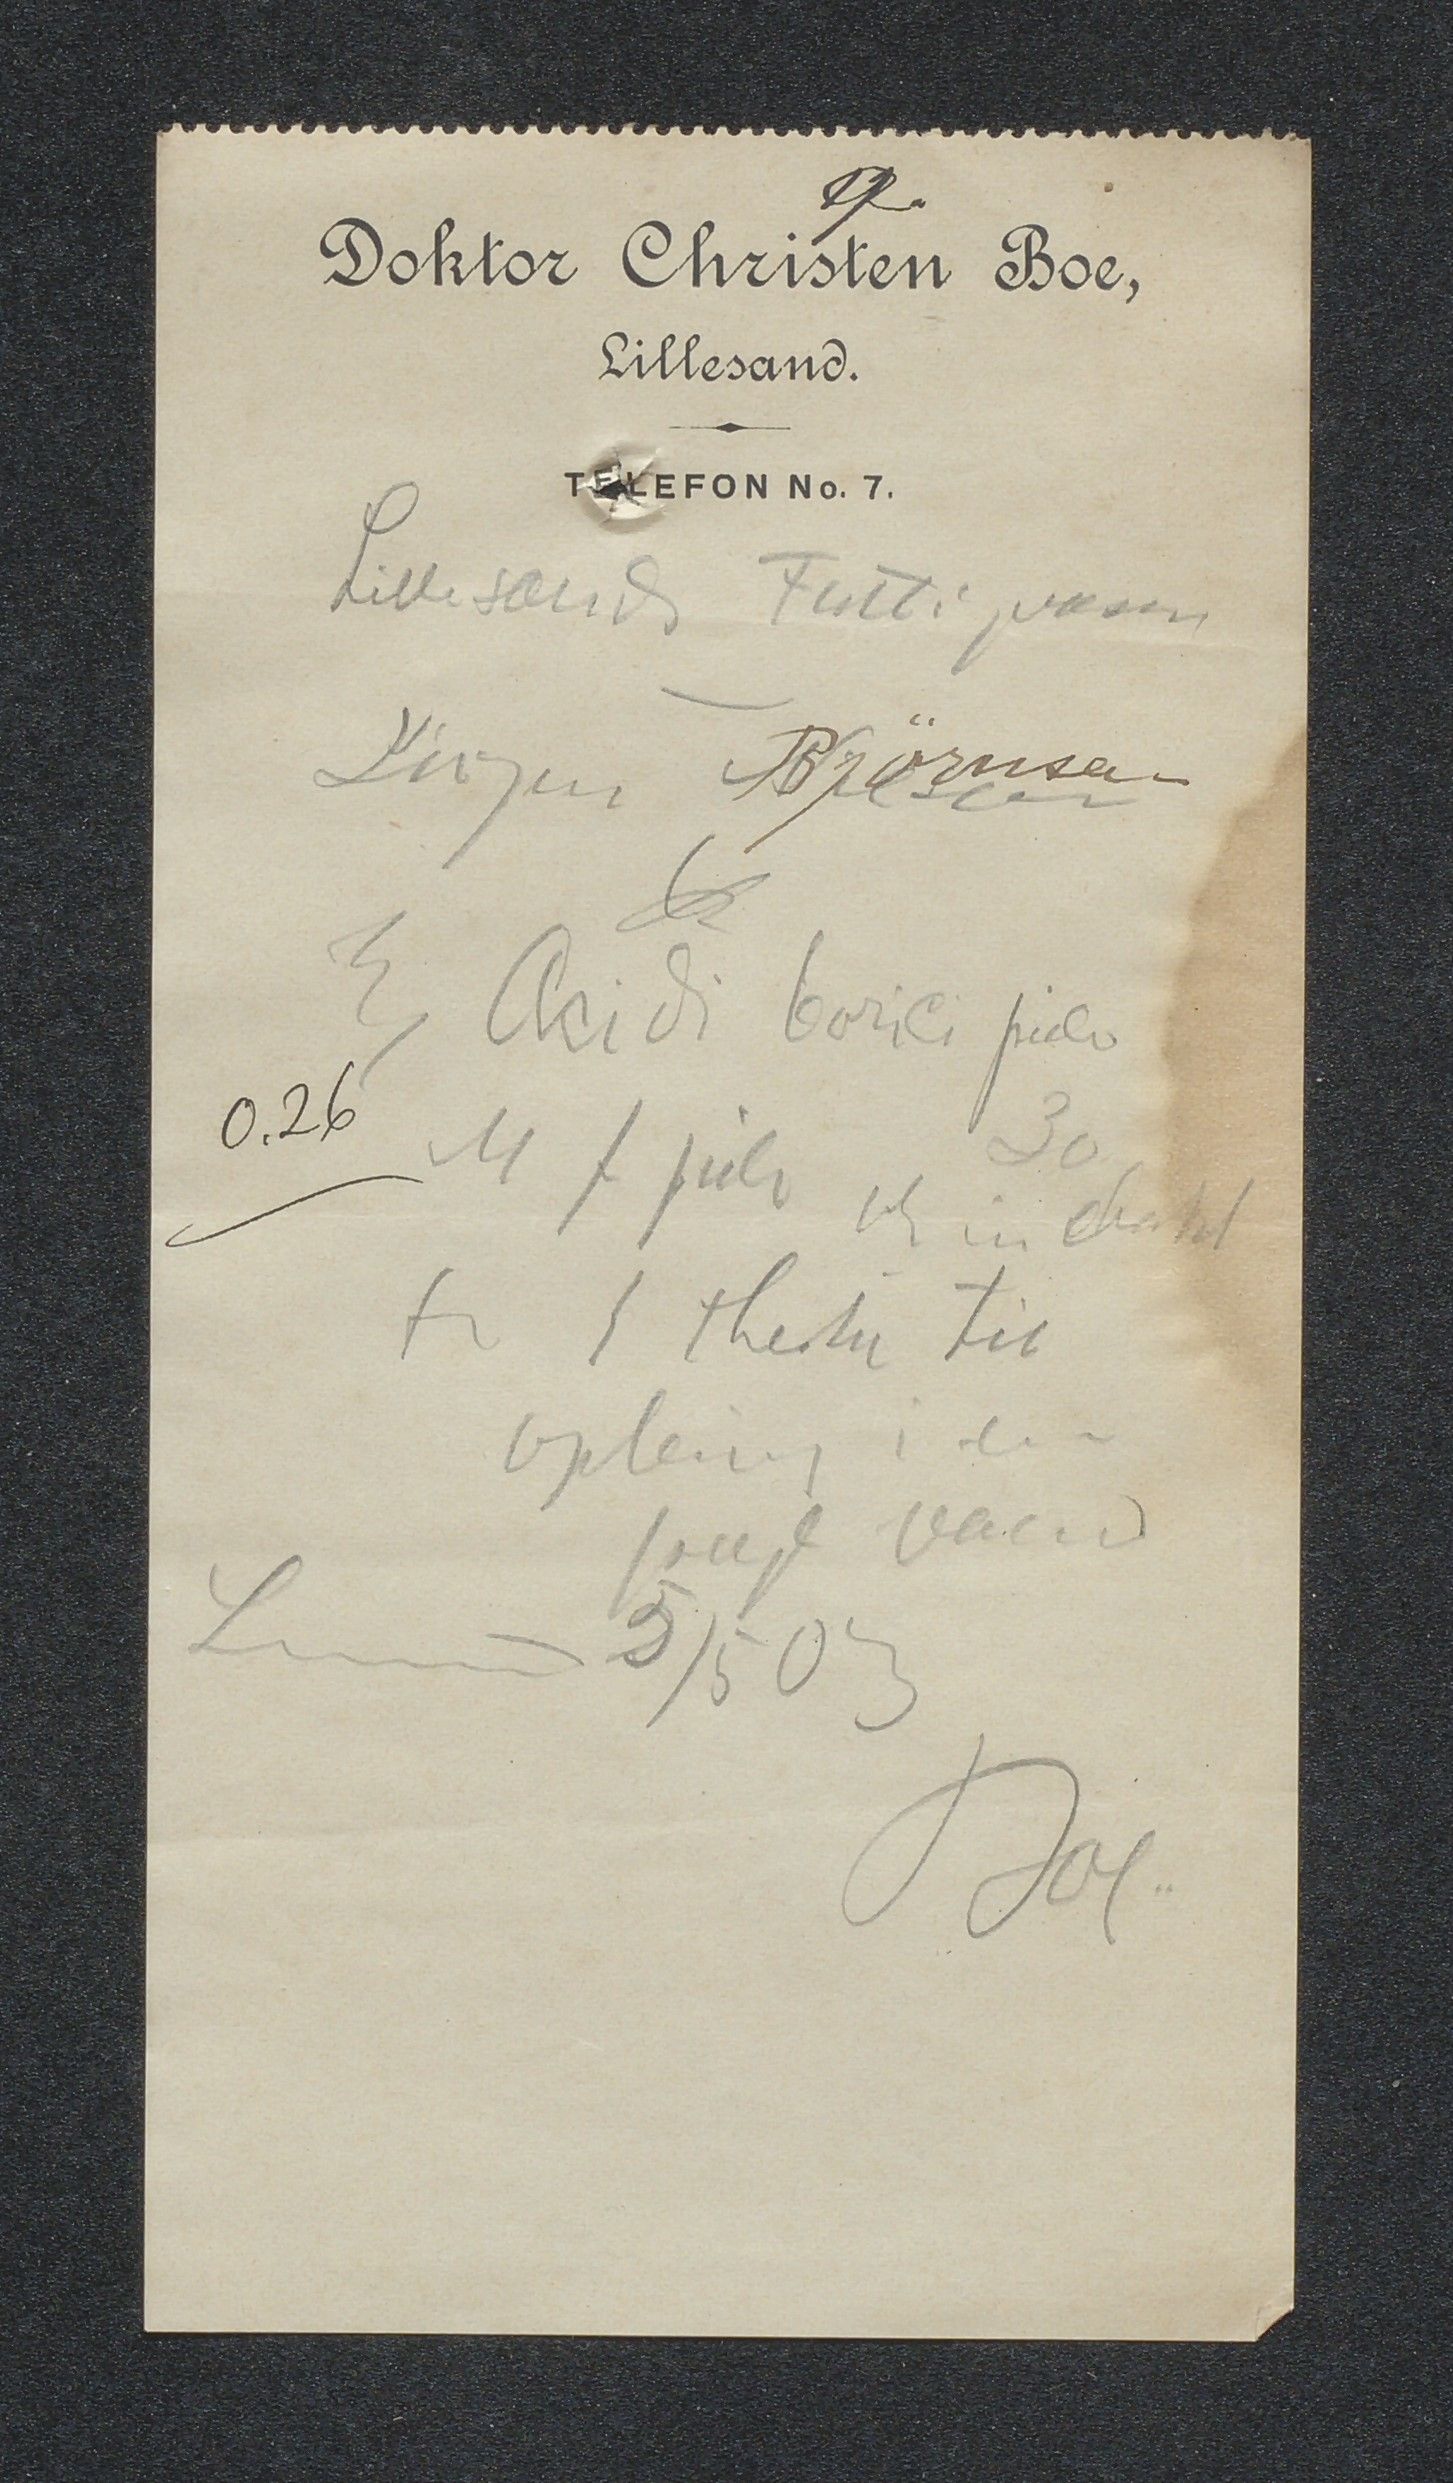 Doktor Christen Boe,
Lillesand.
TELEFON No. 7.
Lillesands Fattigvæsen
Björnsen
Acidi borici pulv
30
0.26
M f pulv
1 theske til
opløsning i en
vand
5/5 03
Boe